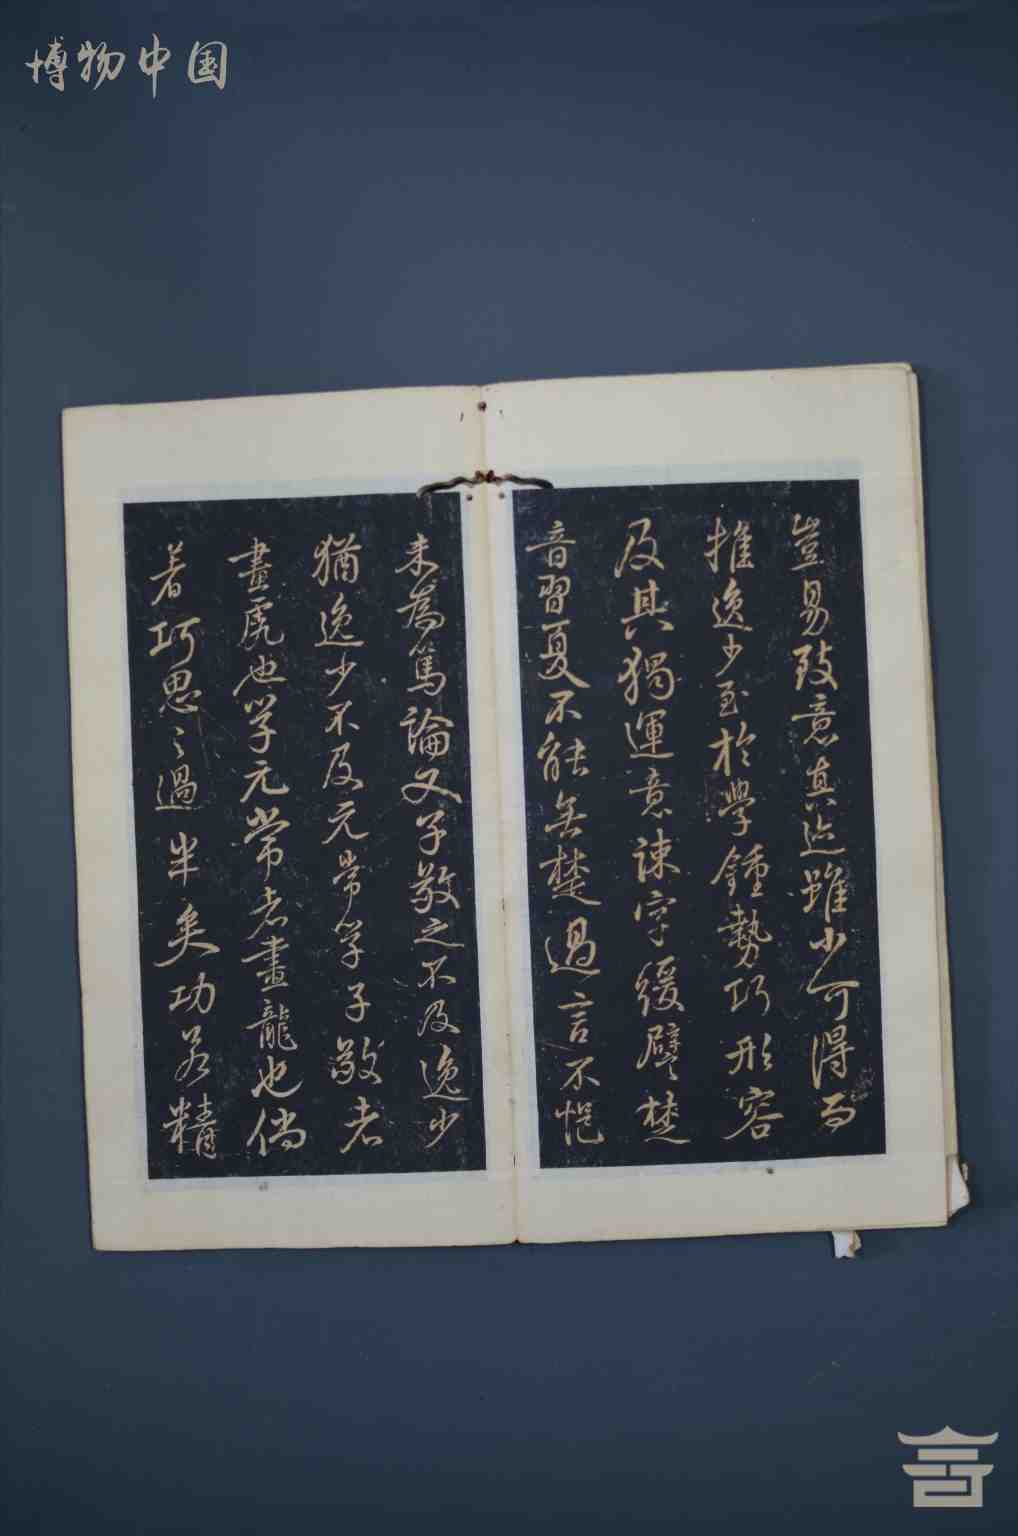 博物中国
豈易致意真迹雖少可得而
推逸少至於學鍾勢巧形容
及其獨運意疎字緩譬楚
音習夏不能無楚過言不悒
未為篤論又子敬之不及逸少
猶逸少不及元常學子敬者
畫虎也學元常者畫龍也倘
著巧思思過半矣功若精